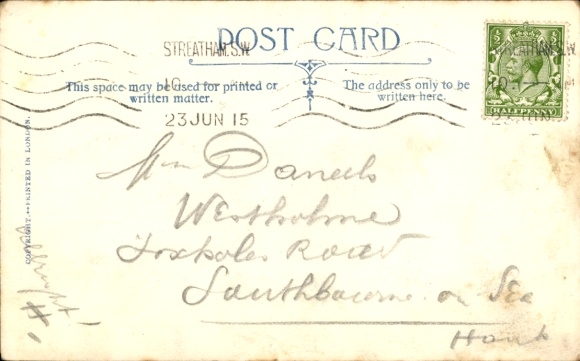 POST CARD
STREATHAM. S.W.
23 JUN 15
This space may be used for printed or
written matter.
The address only to be
written here.
STREATHAM. S.W.
HALFPENNY
COPYRIGHT.—PRINTED IN LONDON.
Daniels
Westholme
Foxholes Road
Southbourne-on Sea
Hants